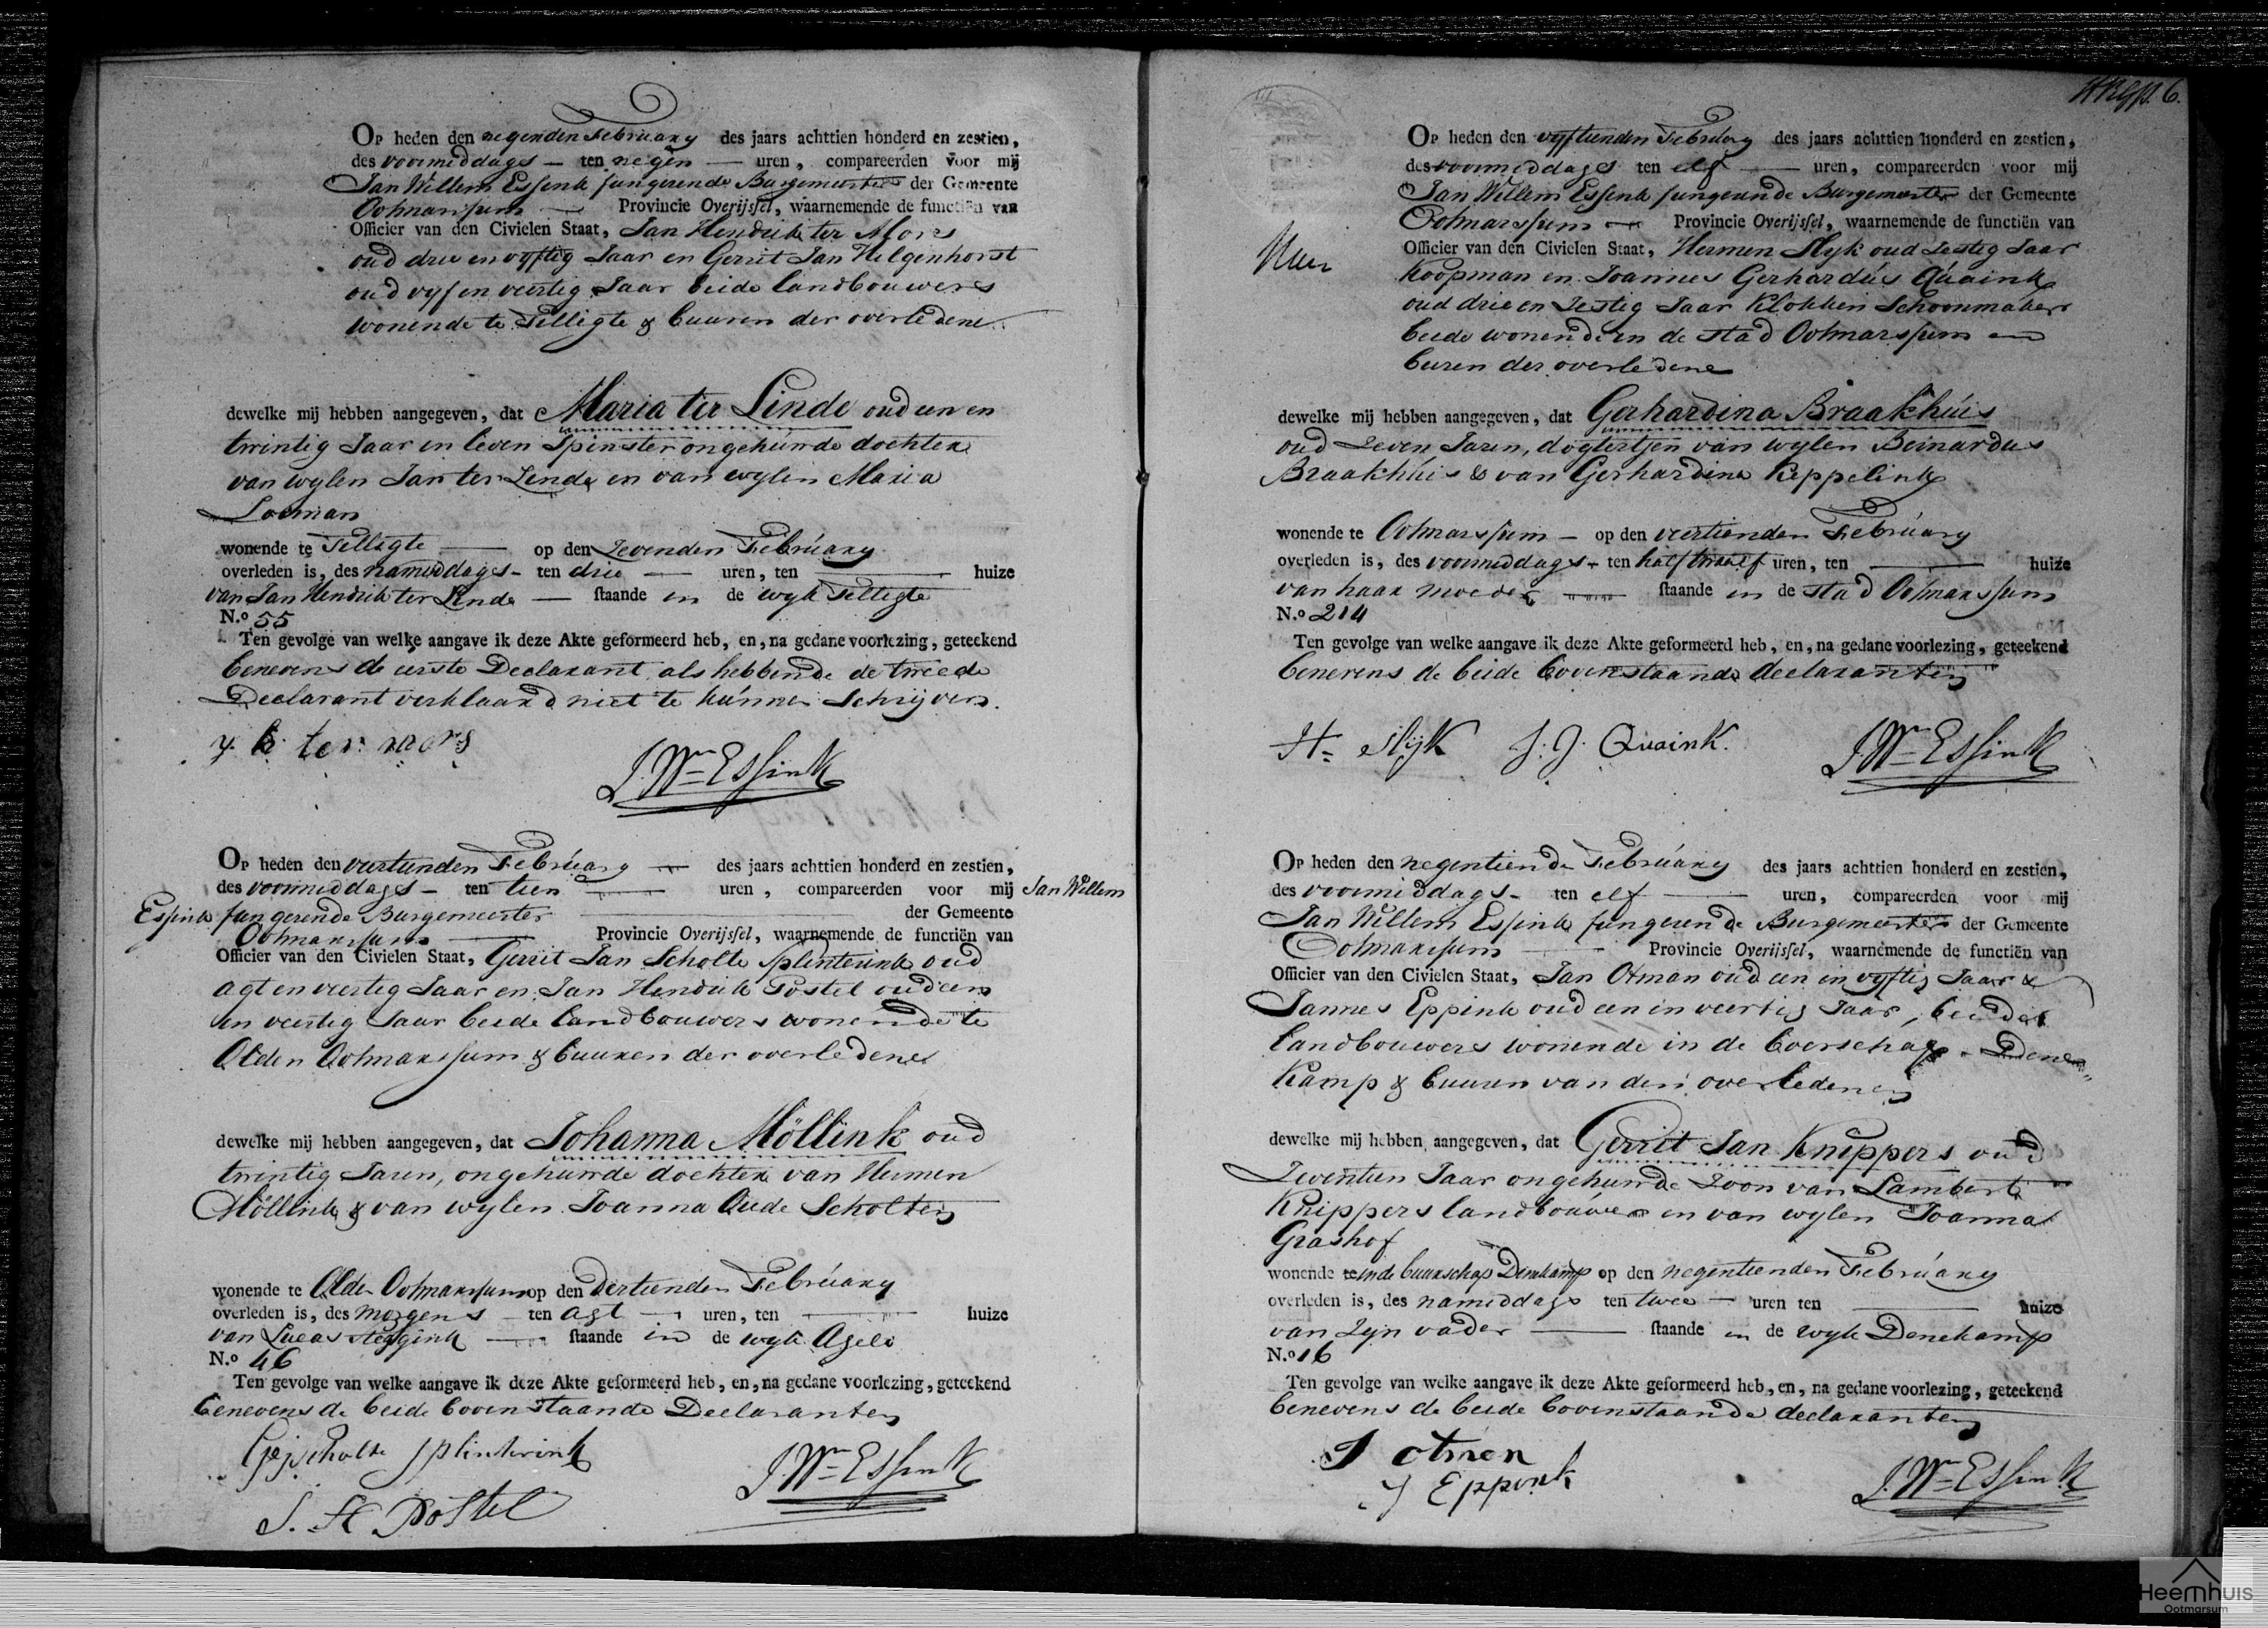 Op heden den negenden February des jaars achttien honderd en zestien,
des voormiddags — ten negen — uren, compareerden voor mij
Jan Willem Essink fungerende Burgemeester der Gemeente
Ootmarssum — Provincie Overijssel, waarnemende de functiën van
Officier van den Civielen Staat, Jan Hendrik ter Mors
oud drie en vyftig Jaar en Gerrit Jan Hilgenhorst
oud vyf en veertig Jaar beide landbouwers
wonende te Tilligte & buuren der overledene
dewelke mij hebben aangegeven, dat Maria ter Linde oud een en
twintig Jaar in leven Spinster ongehuwde dochter
van wylen Jan ter Linde en van wylen Maria
wonende te Tilligte — op den Zevenden February
overleden is, des namiddags - ten drie — uren, ten — huize
van Jan Hendrik ter Linde — staande in de wyk Tilligte
N.o 55
Ten gevolge van welke aangave ik deze Akte geformeerd heb, en, na gedane voorlezing, geteekend
benevens de eerste Declarant, als hebbende de tweede
Declarant verklaard niet te kunnen Schryven.
ter mors
J. Wm Essink
Op heden den veertienden February — des jaars achttien honderd en zestien,
des voormiddags - ten tien — uren, compareerden voor mij Jan Willem
Essink fungerende Burgemeester — der Gemeente
Ootmarssum — Provincie Overijssel, waarnemende de functiën van
Officier van den Civielen Staat, Gerrit Jan Scholte Splinterink oud
agt en veertig Jaar en Jan Hendrik Postel oud een
en veertig Jaar beide landbouwers wonende te
Olden Ootmarssum & buuren der overledene
dewelke mij hebben aangegeven, dat Johanna Möllink oud
twintig Jaren, ongehuwde dochter van Hermen
Möllink & van wylen Joanna Oude Scholten
wonende te Olden Ootmarssum op den dertienden February
overleden is, des morgens - ten agt — uren, ten — huize
van Lucas — staande in de wyk Agelo
N.o 46
Ten gevolge van welke aangave ik deze Akte geformeerd heb, en, na gedane voorlezing, geteekend
benevens de beide bovenstaande Declaranten
Gej scholte splinterink
J. H Postel
J. Wm Essink
6.
Op heden den vyftienden February des jaars achttien honderd en zestien,
des voormiddags ten elf — uren, compareerden voor mij
Jan Willem Essink fungerende Burgemeester der Gemeente
Ootmarssum — Provincie Overijssel, waarnemende de functiën van
Officier van den Civielen Staat, Hermen Slyk oud Zestig Jaar
Koopman en Joannes Gerhardus Quaink
oud drie en Zestig Jaar Klokken Schoonmaker
beide wonende in de stad Ootmarssum en
buren der overledene
dewelke mij hebben aangegeven, dat Gerhardina Braakhuis
oud Zeven Jaren, dogtertjen van wylen Bernardus
Braakhuis & van Gerhardina Keppelink
wonende te Ootmarssum - op den veertienden February
overleden is, des voormiddags - ten half twaalf uren, ten — huize
van haar moeder — staande in de stad Ootmarssum
N.o 214
Ten gevolge van welke aangave ik deze Akte geformeerd heb, en, na gedane voorlezing, geteekend
benevens de beide bovenstaande declaranten
H. Slijk J. G. Quaink.
J. Wm Essink
Op heden den negentiende February des jaars achttien honderd en zestien,
des voormiddags - ten elf — uren, compareerden voor mij
Jan Willem Essink fungerende Burgemeester der Gemeente
Ootmarssum — Provincie Overijssel, waarnemende de functiën van
Officier van den Civielen Staat, Jan Otman oud een en vyftig Jaar &
Jannes Eppink oud een en veertig Jaar, beide
landbouwers wonende in de boerschap Dene
kamp & buuren van den overledenen
dewelke mij hebben aangegeven, dat Gerrit Jan Knippers oud
Zeventien Jaar ongehuwde Zoon van Lambert
Knippers landbouwer en van wylen Joanna
Grashof
wonende te in de buurschap Denekamp op den negentienden February
overleden is, des namiddags ten twee — uren ten — huize
van Zyn vader — staande in de wyk Denekamp
N.o 16
Ten gevolge van welke aangave ik deze Akte geformeerd heb, en, na gedane voorlezing, geteekend
benevens de beide bovenstaande declaranten
J otmen
J Eppink
J. Wm Essink
Heemhuis
Ootmarsum